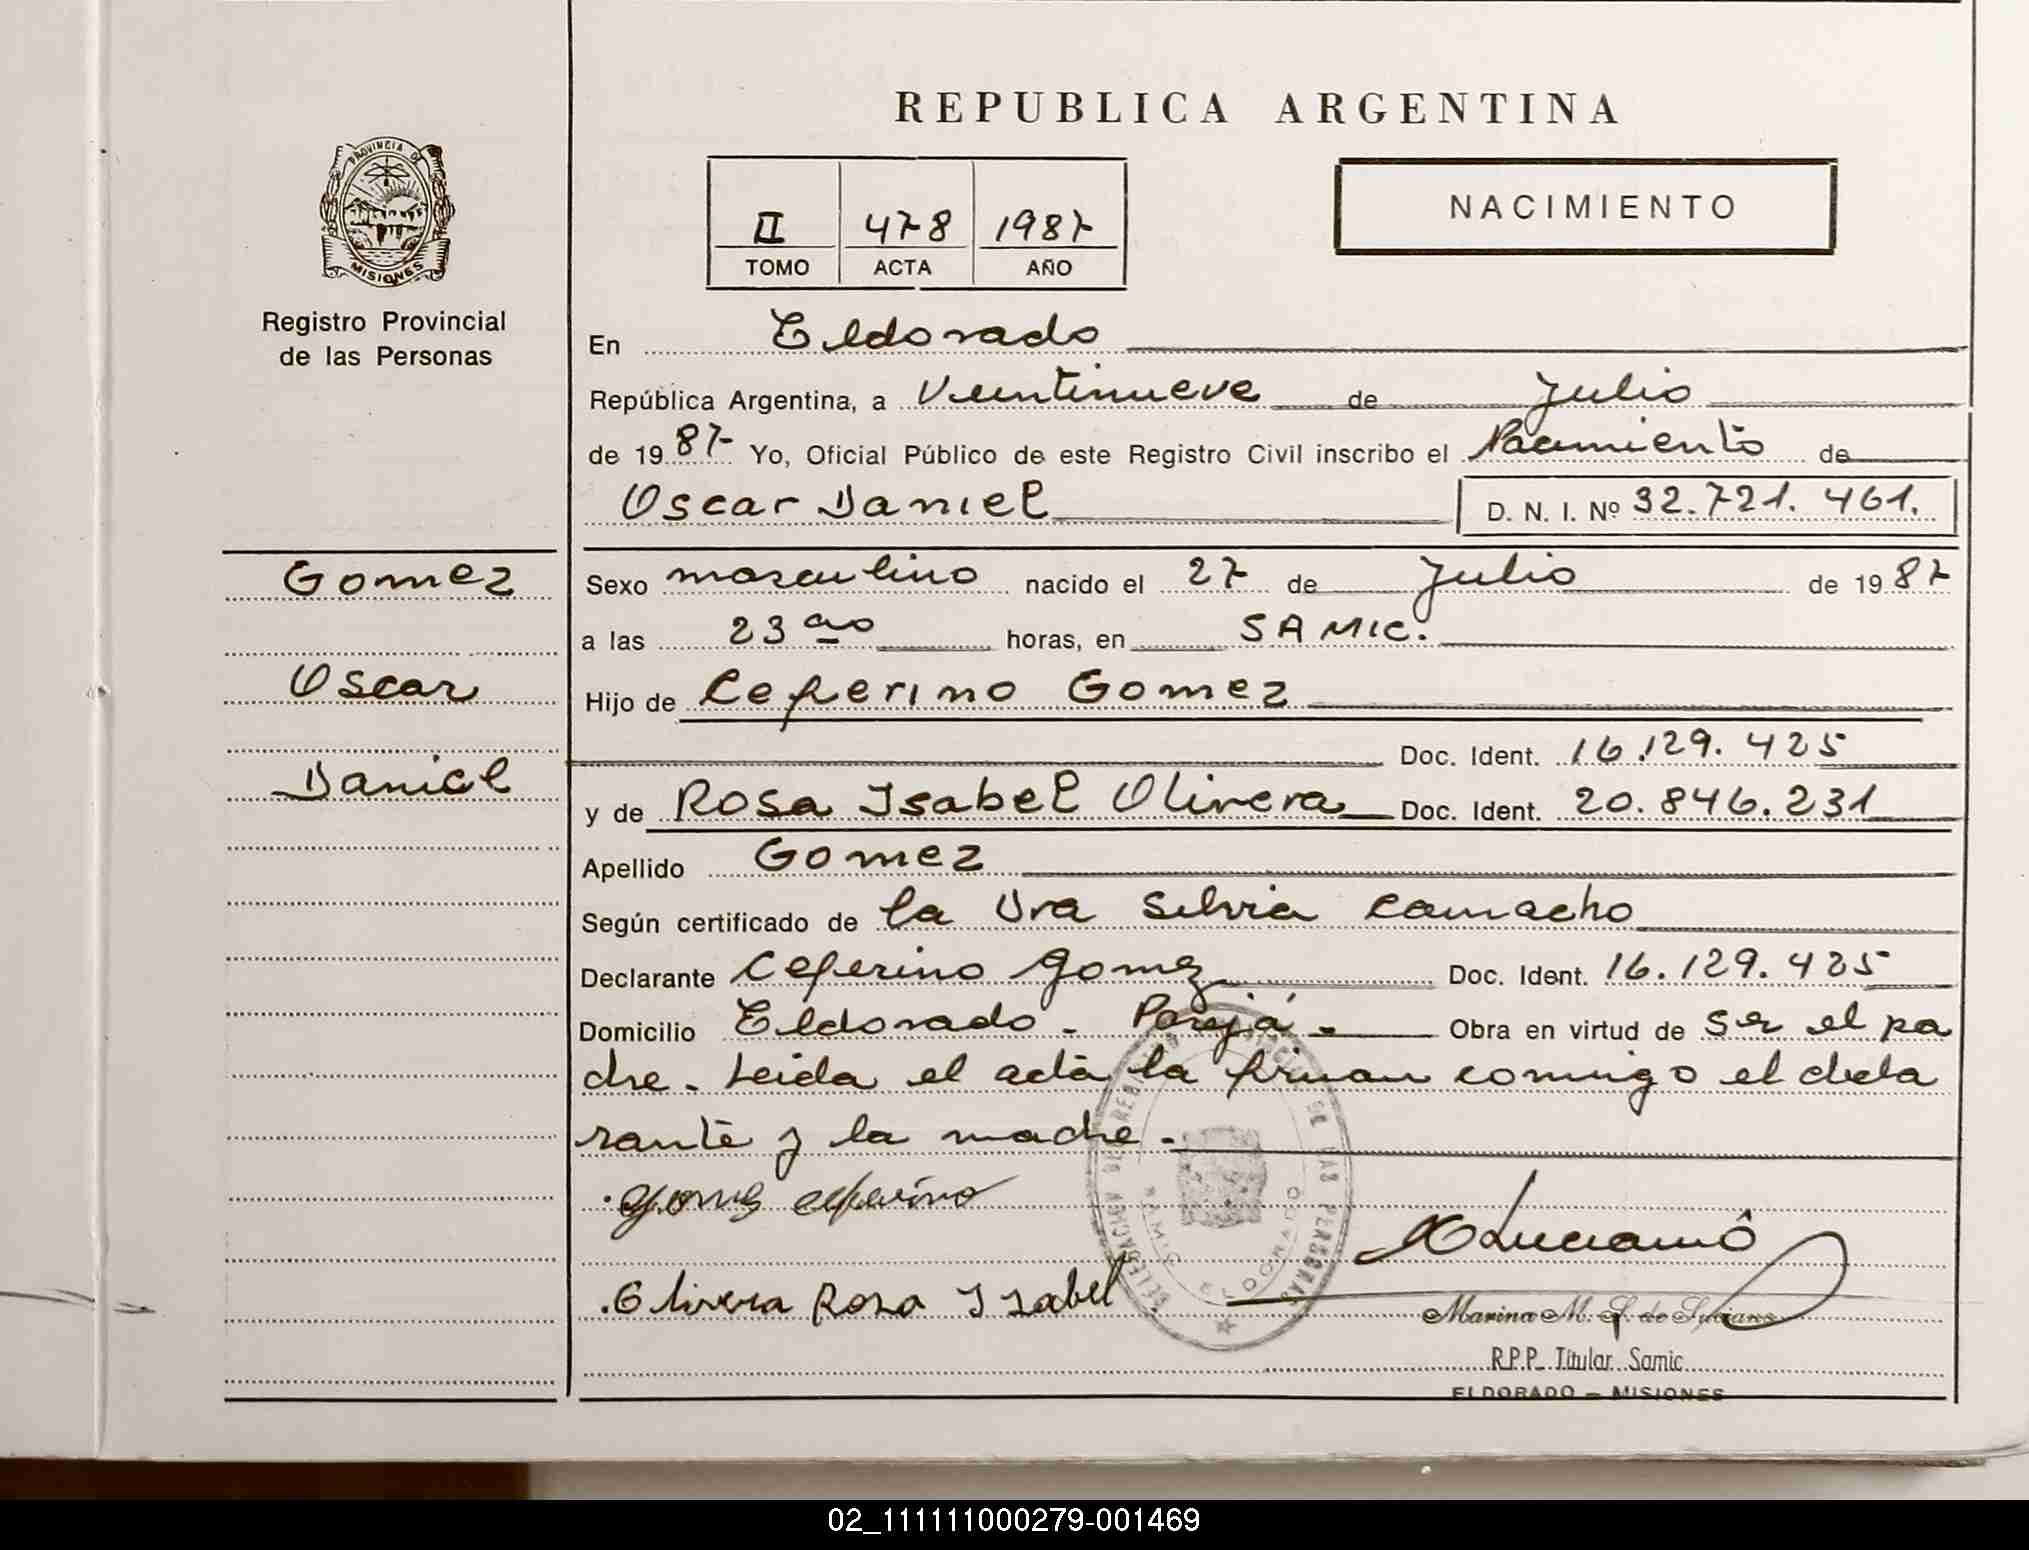 REPUBLICA ARGENTINA
PROVINCIA DE
MISIONES
Registro Provincial
de las Personas
II 478 1987
TOMO ACTA AÑO
NACIMIENTO
En Eldorado
República Argentina, a Veintinueve de Julio
de 1987 Yo, Oficial Público de este Registro Civil inscribo el Nacimiento de
Oscar Daniel D. N. I. Nº 32.721.461.
Gomez
Oscar
Daniel
Sexo masculino nacido el 27 de Julio de 1987
a las 23 horas, en SAMIC.
Hijo de Ceferino Gomez
Doc. Ident. 16.129.425
y de Rosa Isabel Olivera Doc. Ident. 20.846.231
Apellido Gomez
Según certificado de la Dra Silvia Camacho
Declarante Ceferino Gomez Doc. Ident. 16.129.425
Domicilio Eldorado - Obra en virtud de ser el pa
dre. Leida el acta, la firman conmigo el decla
rante y la madre.-
Gomez Ceferino
Olivera Rosa Isabel
DE LAS PERSONAS
ELDORADO
Marina M. de Luciano
R.P.P. Titular Samic
ELDORADO - MISIONES
02_111111000279-001469